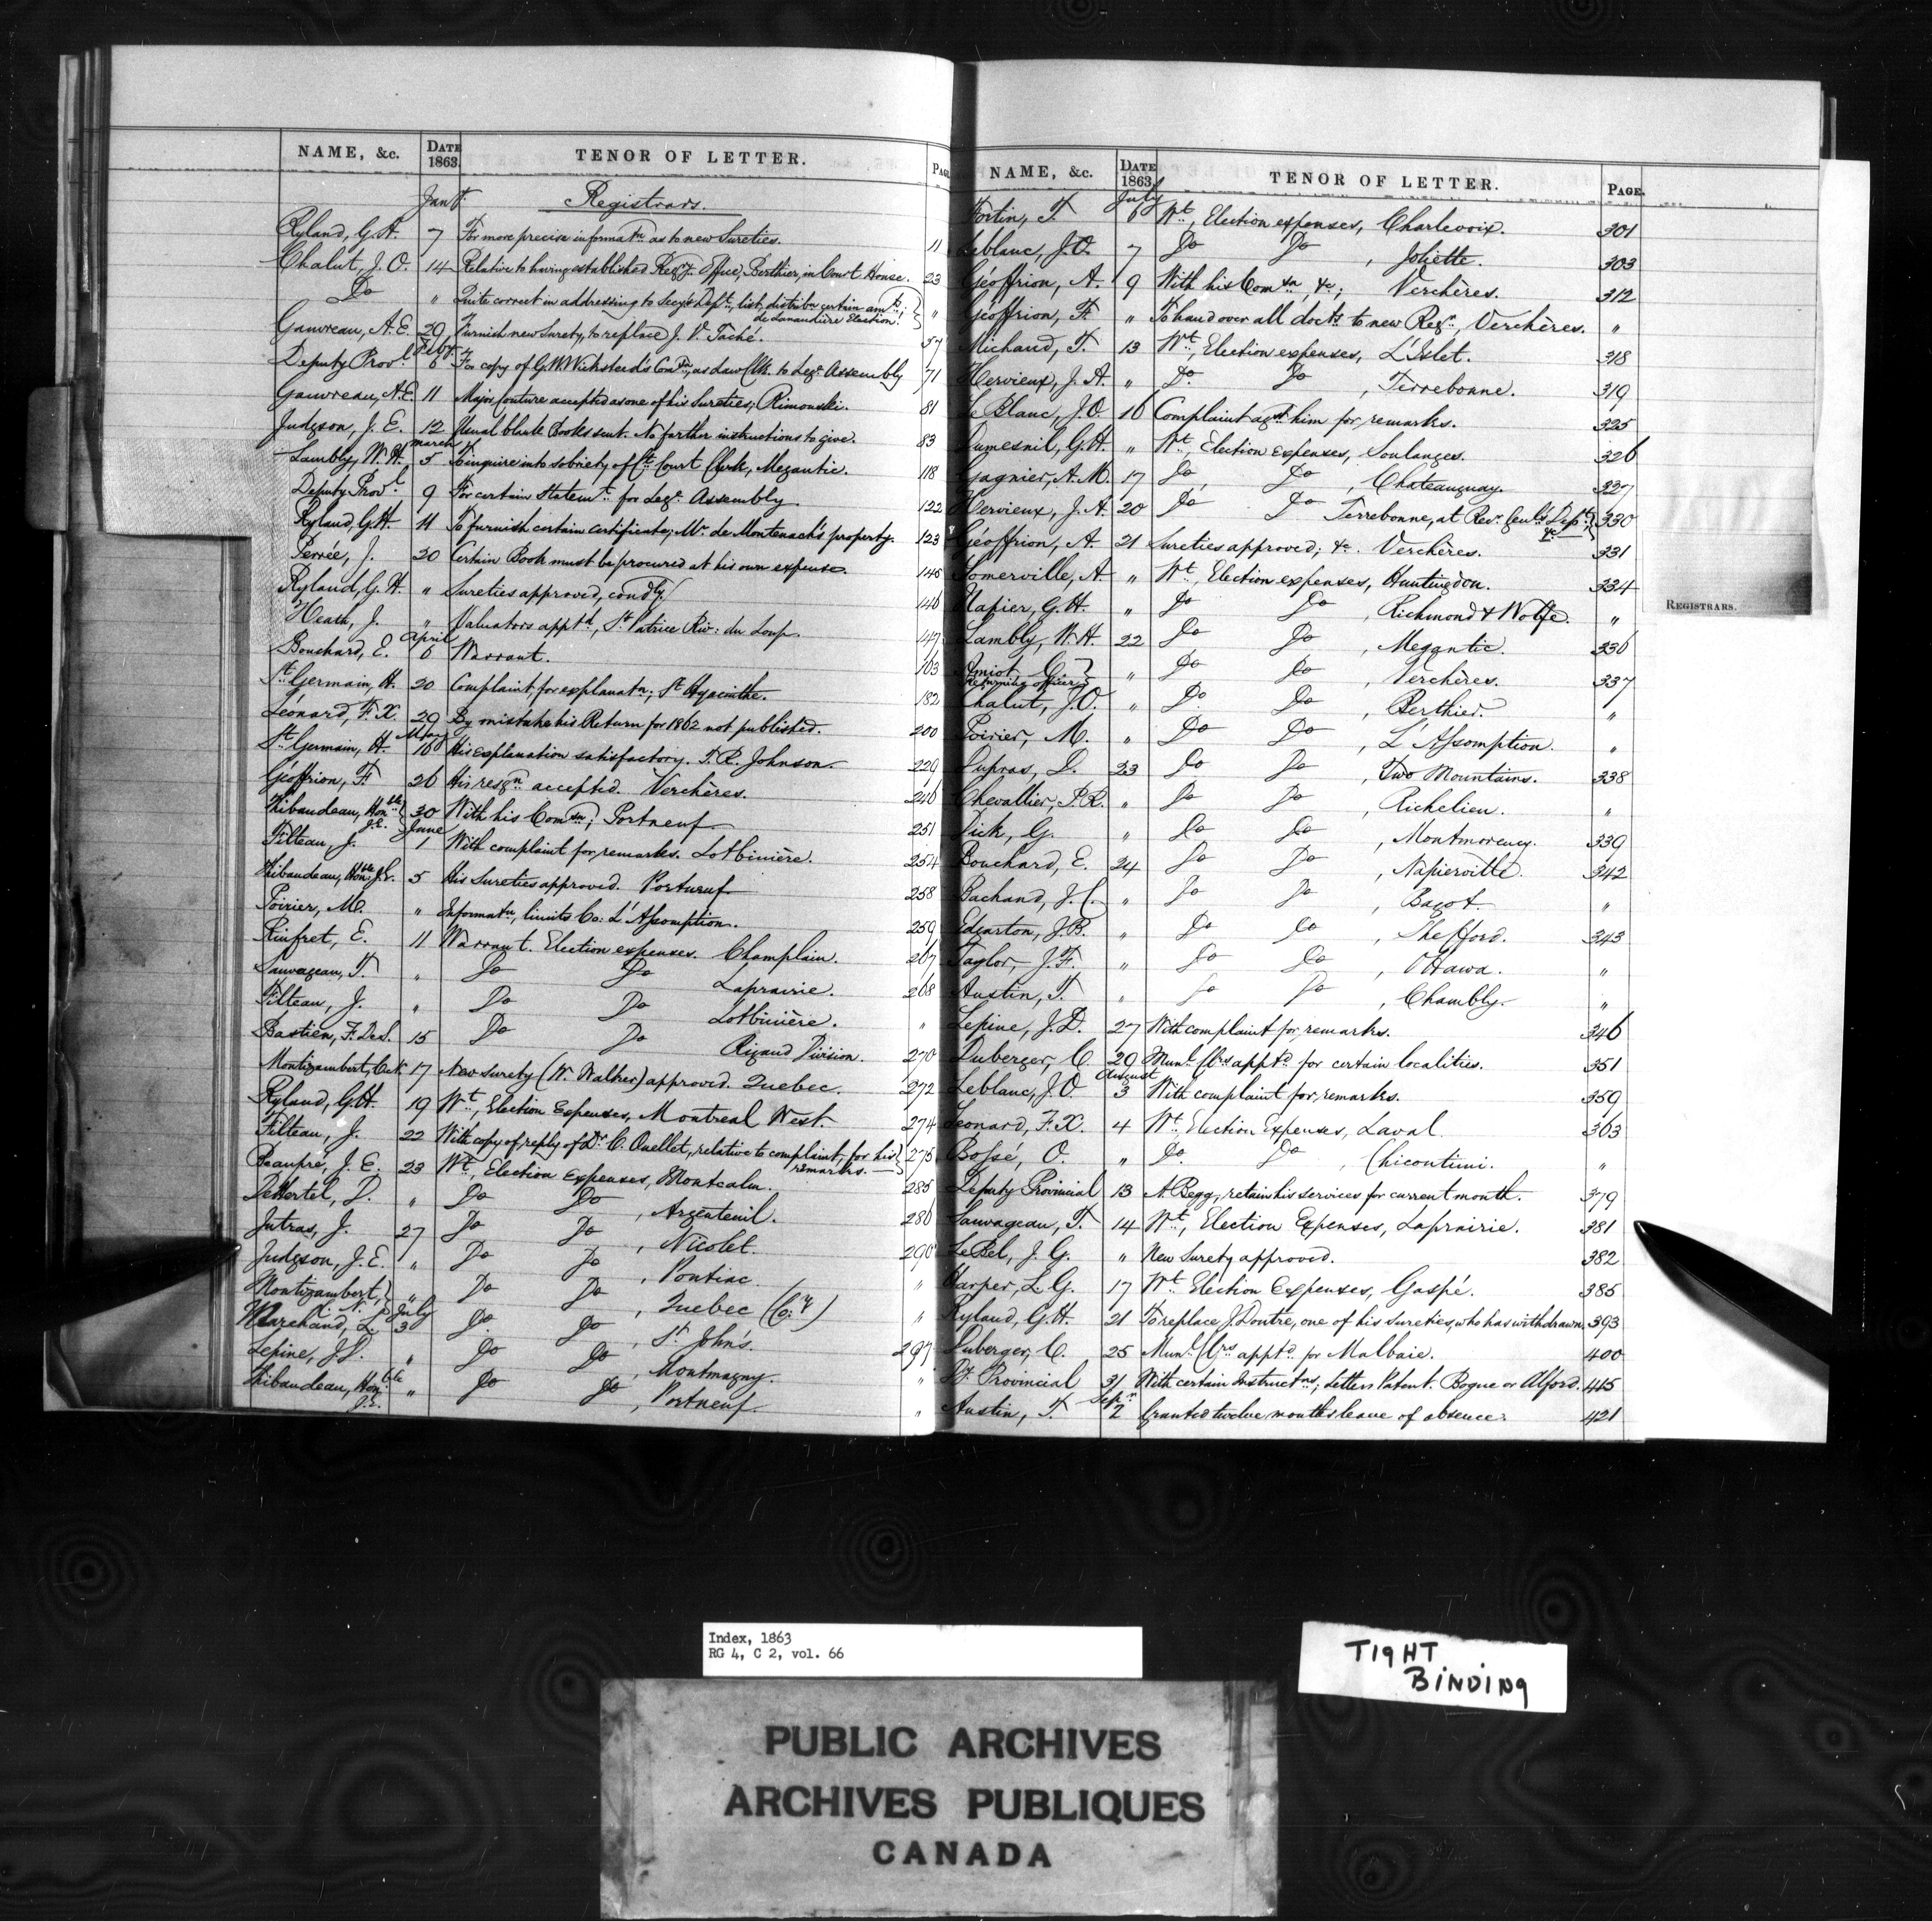 NAME, &c. DATE 1863. TENOR OF LETTER. PAGE
Jany. Registrars.
Ryland, G.H. 7 For more precise informatn as to new Sureties. 11
Chalut, J.O. 14 Relative to having established Regy. Office, Berthier, in Court House. 23
Do " Quite correct in addressing to Secy's Dept, list, distribn certain amts; "
de Lanaudière Election.
Gauvreau, A.E. 29 Furnish new Surety, to replace J. V. Taché. 57
Feby.
Deputy Provl. 6 For copy of G.W. Wicksteed's Comn, as Law Clk. to Lege. Assembly 71
Gauvreau, A.E. 11 Major Couture accepted as one of his Sureties; Rimouski. 81
Judgson, J.E. 12 Usual blank Books sent. No further instructions to give. 83
March
Lambly, W.H. 5 To inquire into sobriety of Ct. Court Clerk, Megantic. 118
Deputy Provl. 9 For certain Statemt. for Lege. Assembly. 122
Ryland, G.H. 11 To furnish certain certificate; Mr. de Montenach's property. 123
Perrée, J. 20 Certain Book must be procured at his own expense. 145
Ryland, G.H. " Sureties approved, condly. 146
Heath, J. " Valuators apptd, St. Patrice Riv: du Loup. 147
April
Bouchard, E. 6 Warrant. 163
St. Germain, H. 20 Complaint, for explanatn; St. Hyacinthe. 182
Léonard, F.X. 29 By mistake his Return for 1862 not published. 200
May
St. Germain, H. 16 His explanation satisfactory. T.R. Johnson. 229
Géoffrion, F. 26 His resgn. accepted. Verchères. 246
Thibaudeau, Honble J.E. 30 With his Comsn; Portneuf 251
June
Filteau, J. 1 With complaint for remarks. Lotbinière. 254
Thibaudeau, Honble J.E. 5 His Sureties approved. Portneuf 258
Poirier, M. " Informatn, limits Co: L'Assomption. 259
Rinfret, E. 11 Warrant. Election expenses. Champlain. 267
Sauvageau, T. " Do Do Laprairie. 268
Filteau, J. " Do Do Lotbinière. "
Bastien, F. Des. 15 Do Do Rigaud Division 270
Montizambert, 17 New Surety (W. Walker) approved. Quebec. 272
Ryland, G.H. 19 Wt., Election Expenses, Montreal West. 274
Filteau, J. 22 With copy of reply of Dr. C. Ouellet, relative to complaint, for his 275
remarks.
Beaupré, J.E. 23 Wt., Election Expenses, Montcalm. 285
DeHertel, D. " Do Do, Argenteuil. 286
Jutras, J. 27 Do Do, Nicolet. 290
Judgson, J.E. " Do Do, Pontiac. "
Montizambert, " Do Do, Quebec (Co:y) "
July
Marchand, L. 3 Do Do, St. John's. 297
Lepine, J.D. " Do Do, Montmagny. "
Thibaudeau, Honble J.E. " Do Do, Portneuf. "
NAME, &c. DATE 1863. TENOR OF LETTER. PAGE.
July
Fortin, T. 6 Wt., Election expenses, Charlevoix. 301
Leblanc, J.O. 7 Do Do, Joliette. 303
Géoffrion, A. 9 With his Comsn, &c; Verchères. 312
Géoffrion, F. " To hand over all docts. to new Regr., Verchères. "
Michaud, T. 13 Wt., Election expenses, L'Islet. 318
Hervieux, J.A. " Do. Do, Terrebonne. 319
Le Blanc, J.O. 16 Complaint agst him for remarks. 325
Dumesnil, G.H. " Wt., Election expenses, Soulanges. 326
Gagnier, A.M. 17 Do, Do, Chateauguay. 327
Hervieux, J.A. 20 Do Do Terrebonne, at Recr. Genl's Dept. &c 330
Géoffrion, A. 21 Sureties approved; &c. Verchères. 331
Somerville, A. " Wt., Election expenses, Huntingdon. 334
Napier, G.H. " Do Do, Richmond & Wolfe. "
Lambly, W.H. 22 Do Do, Megantic. 336
Amiot, G. " Do Do, Verchères. 337
Returning officer
Chalut, J.O. " Do. Do, Berthier. "
Poirier, M. " Do Do, L'Assomption. "
Dupras, D. 23 Do Do, Two Mountains. 338
Chevallier, P.R. " Do Do, Richelieu. "
Dick, G. " Do Do, Montmorency. 339
Bouchard, E. 24 Do Do, Napierville. 342
Bachand, J.C. " Do Do, Bagot. "
Edgarton, J.B. " Do Do, Shefford. 343
Taylor, J.F. " Do Do, Ottawa. "
Austin, T. " Do Do, Chambly. "
Lepine, J.D. 27 With complaint for remarks. 346
Duberger, C. 29 Munl. Clrs apptd for certain localities. 351
August
Leblanc, J.O. 3 With complaint for remarks. 359
Leonard, F.X. 4 Wt., Election Expenses, Laval 363
Bossé, O. " Do. Do, Chicoutimi. "
Deputy Provincial 13 A. Begg, retain his services for current month. 379
Sauvageau, T. 14 Wt., Election Expenses, Laprairie. 381
LeBel, J.G. " New Surety approved. 382
Harper, L.G. 17 Wt. Election Expenses, Gaspé. 385
Ryland, G.H. 21 To replace J. Doutre, one of his sureties, who has withdrawn. 393
Duberger, C. 25 Munl. Clrs apptd. for Malbaie. 400
Dy. Provincial 31 With certain Instructns; Letters Patent. Bogue or Alford. 415
Sepr.
Austin, T. 2 Granted twelve months leave of absence. 421
REGISTRARS.
Index, 1863
RG 4, C 2, vol. 66
TIGHT
BINDING
PUBLIC ARCHIVES
ARCHIVES PUBLIQUES
CANADA